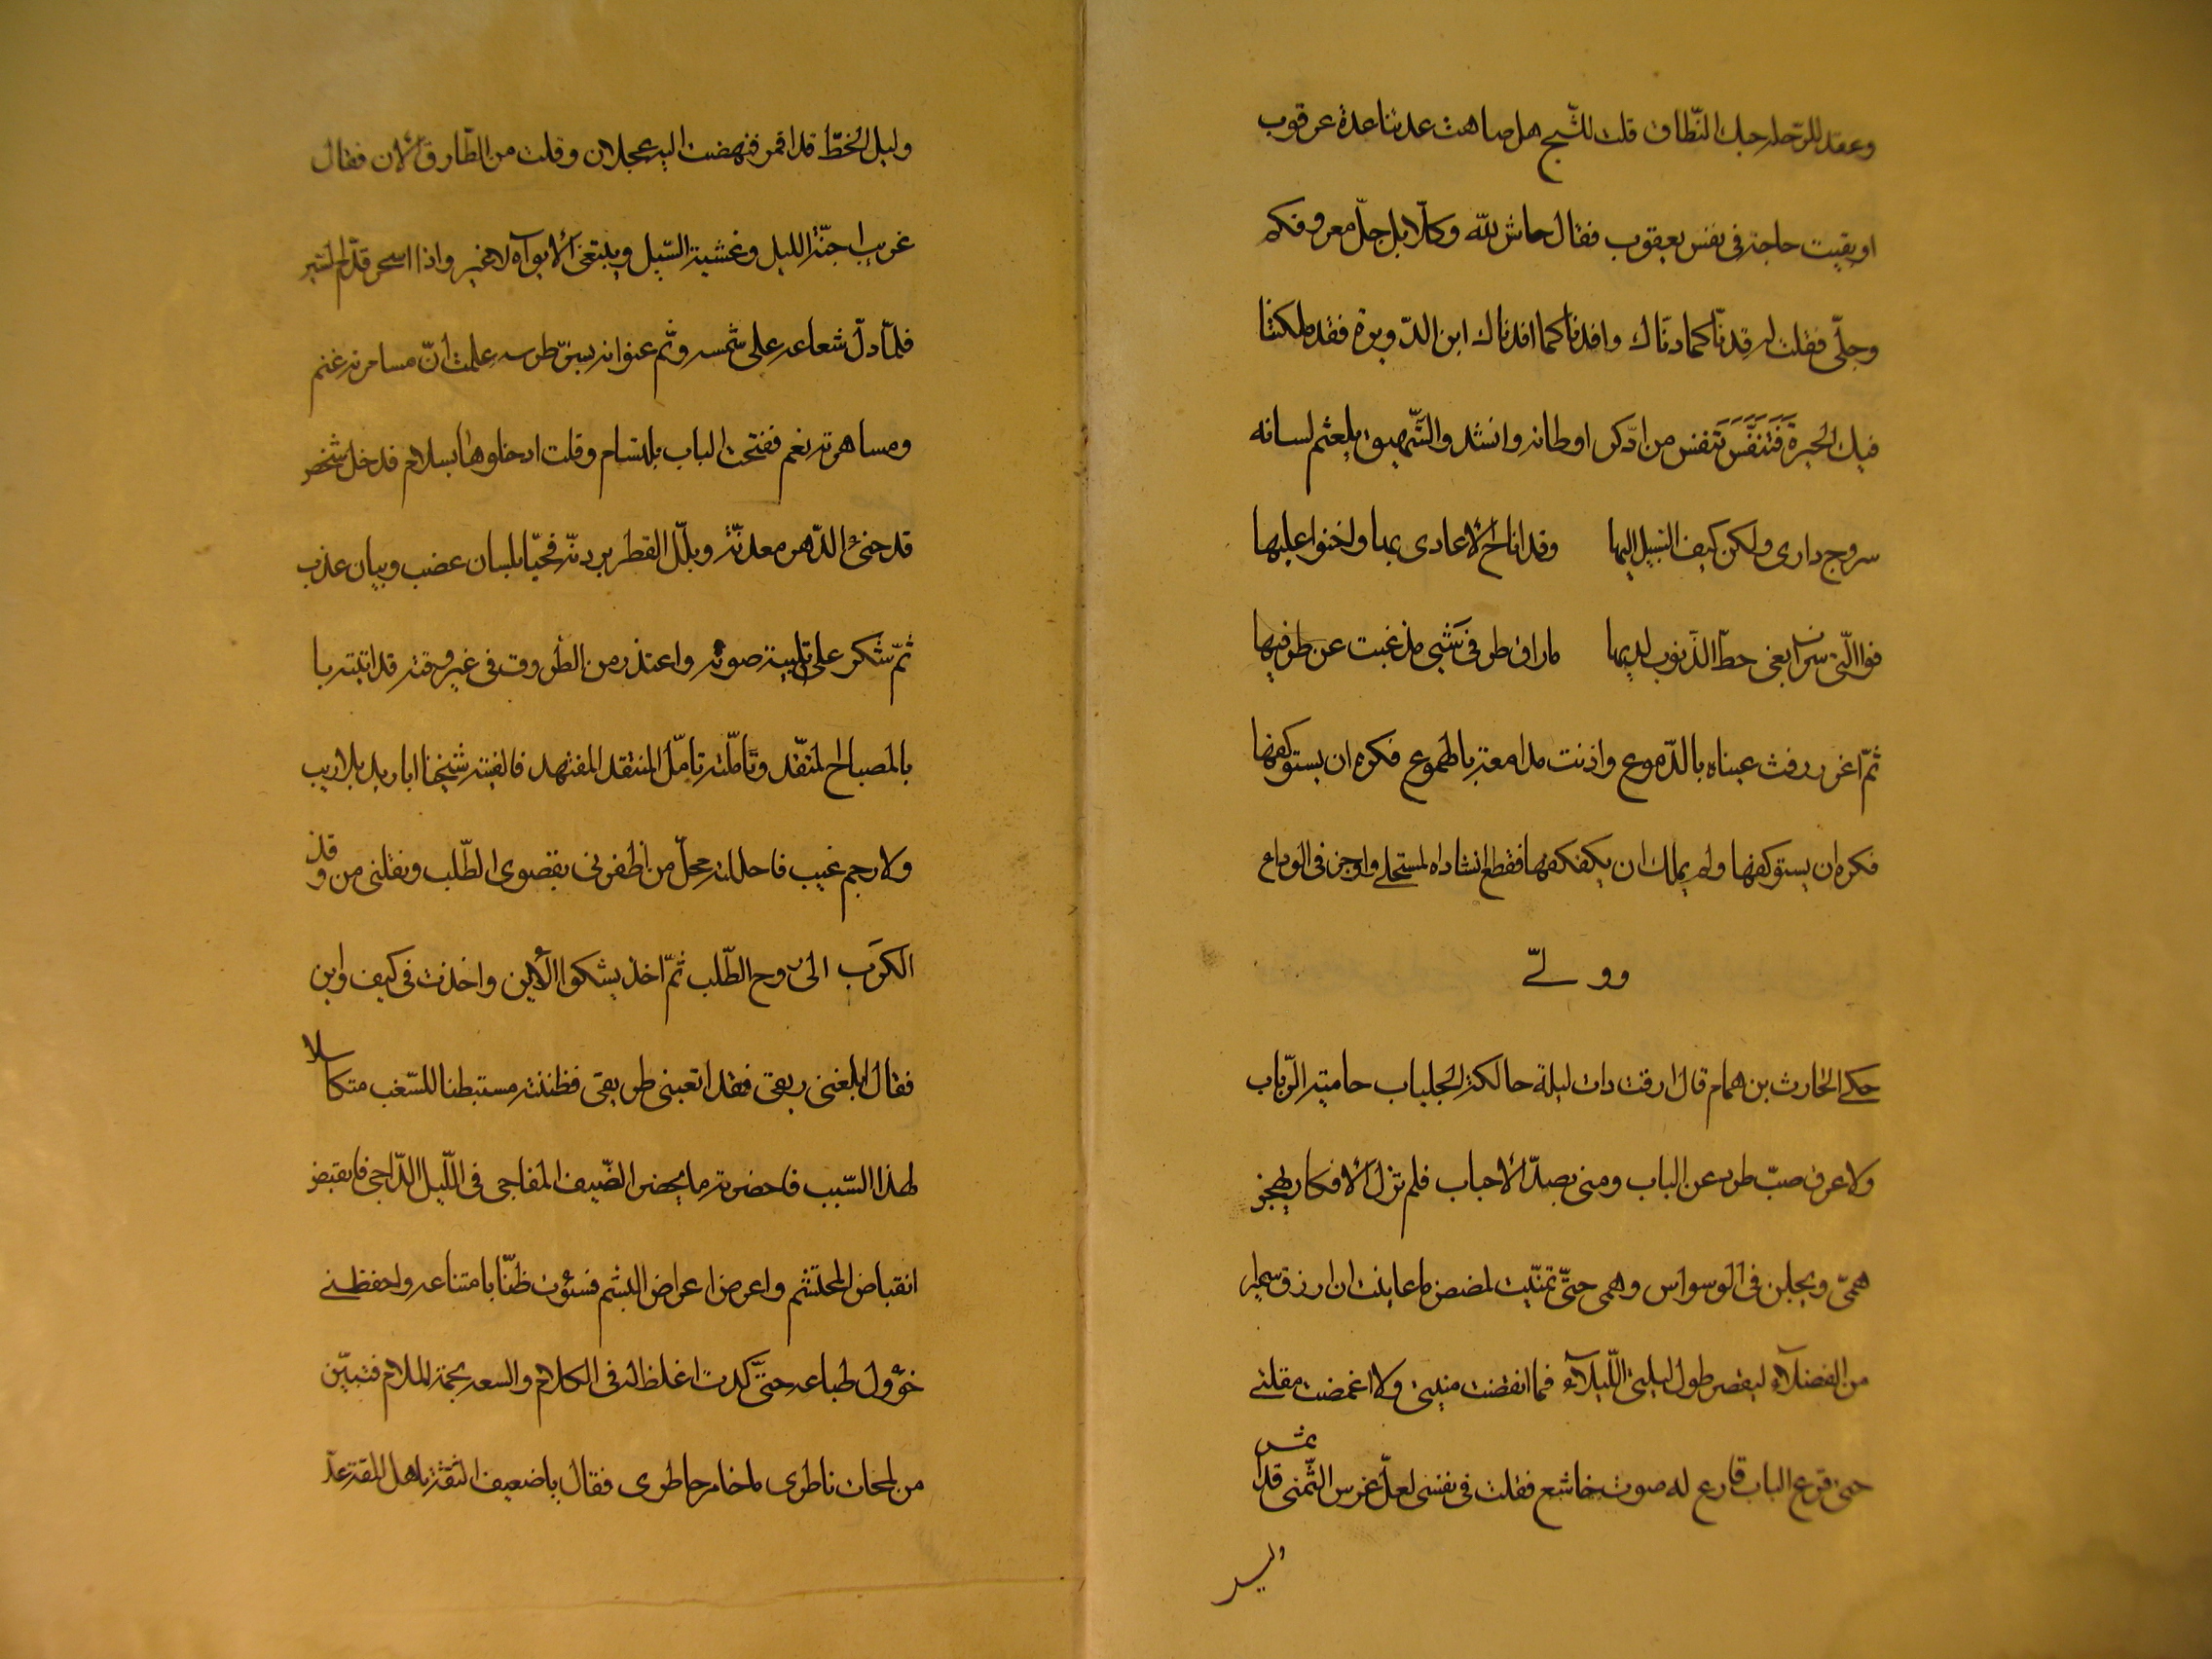 وعقد للرّحلة حبك النّطاق قلت للشّيخ هل ضاهت عدتنا عدة عرقوب
او بقيت حاجة فى نفس يعقوب فقال حاش للّه وكلّا بل جلّ معروفكم
وجلّى فقلت له فدنّا كما دنّاك وافدنا كما افدناك اين الدّويرة فقد ملكتنا
فيك الحيرة فتنفّس تنفس من ادّكر اوطانه وانشد والشّهيق يلعثم لسانه
سروج دارى ولكن كيف السّبيل اليها وقد اناخ الاعادى بها واخنوا عليها
فوالّتى سرت ابغى حطّ الذّنوب لديها ما راق طرفى شئ مذ غبت عن طرفيها
ثمّ اغرورقت عيناه بالدّموع واذنت مدامعه بالهموع فكره ان يستوكفها
فكره ان يستوكفها ولم يملك ان يكفكفها فقطع انشاده المستحلى واوجز فى الوداع
وولّى
حكى الحارث بن همام قال ارقت ذات ليلة حالكة الجلباب حامية الرّباب
ولا عرف صبّ طرد عن الباب ومنى بصدّ الاحباب فلم تزل الافكار يهجن
همّى ويجلن فى الوسواس وهمى حتّى تمنّيت لمضض ما عاينت ان ارزق سميرا
من الفضلاء ليقصر طول ليلتى اللّيلاء فما انقضت منيتى ولا اغمضت مقلتى
حتى قرع الباب قارع له صوت خاشع فقلت فى نفسى لعلّ غرس التّمنى قد اثمر
وليل
وليل الخطّ قد اقمر فنهضت اليه عجلان وقلت من الطّارق الان فقال
غريب اجنّه الليل وغشيه السّيل ويبتغى الايواء لا غير واذا اسحر قدّم السّير
فلمّا دلّ شعاعه على شمسه ونمّ عنوانه بسرّ طرسه علمت انّ مسامرته غنم
ومساهرته نغم ففتحت الباب بابتسام وقلت ادخلوها بسلام فدخل شخص
قد حنى الدّهر صعدته وبلّل القطر بردته فحيّا بلسان عضب وبيان عذب
ثمّ شكر على تلبية صوته واعتذر من الطّروق فى غير وقته فدانيته با
بالمصباح المتّقد وتأمّلته تأمّل المنتقد المفتهد فالفيته شيخنا ابا زيد بلا ريب
ولا رجم غيب فاحللته محلّ من اظفرنى بقصوى الطّلب ونقلنى من وقذ
الكرب الى روح الطّلب ثمّ اخذ يشكوا الاين واخذت فى كيف واين
فقال ابلعنى ريقى فقد اتعبنى طريقى فظننته مستبطنا للسّغب متكاسلا
لهذا السّبب فاحضرته ما يحضر الضّيف المفاجى فى اللّيل الدّاجى فانقبض
انقباض المحتشم واعرض اعراض البشم فسئوت ظنّا بامتناعه واحفظنى
حؤول طباعه حتّى كدت اغلظ له فى الكلام والسعه بحمة الملام فتبيّن
من لمحات ناظرى ما خامر خاطرى فقال يا ضعيف الثّقة باهل المقة عدّ